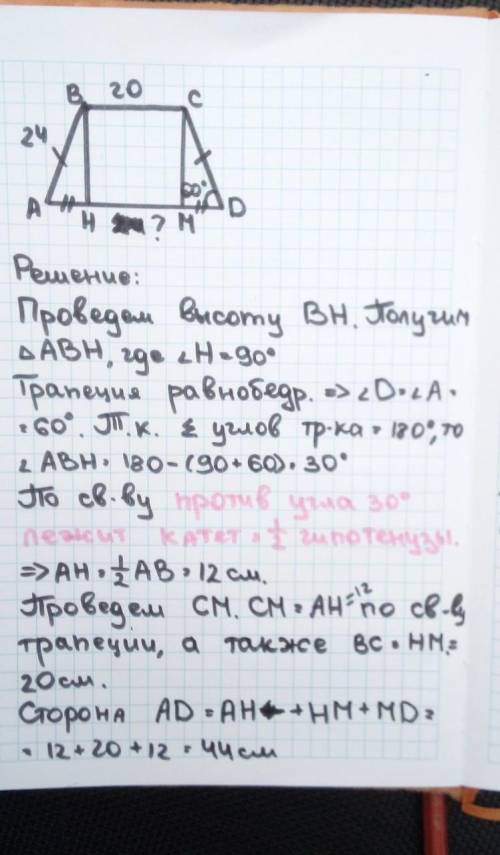 B 20 C
24
60°
A H ? M D
Решение:
Проведем высоту BH. Получим
△ABH, где ∠H = 90°
Трапеция равнобедр. => ∠D = ∠A =
= 60°. Т.к. Σ углов тр-ка = 180°, то
∠ABH = 180 - (90 + 60) = 30°
По св-ву против угла 30°
лежит катет = ½ гипотенузы.
=> AH = ½ AB = 12 см.
Проведем CM. CM = AH = 12 по св-ву
трапеции, а также BC = HM =
20 см.
Сторона AD = AH + HM + MD =
= 12 + 20 + 12 = 44 см